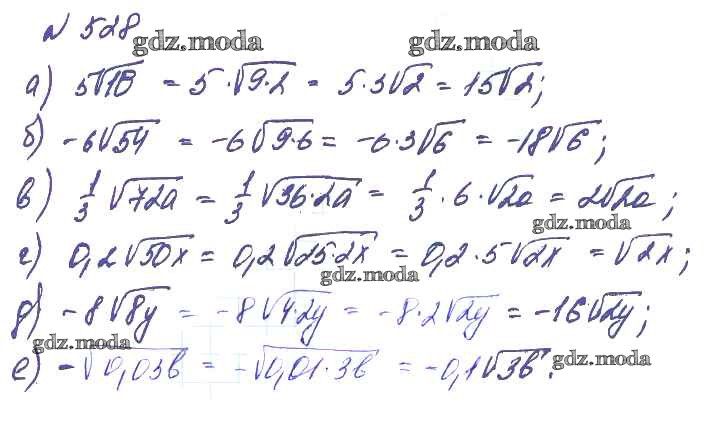 № 528
gdz.moda gdz.moda
а) 5√18 = 5·√9·2 = 5·3√2 = 15√2;
б) -6√54 = -6√9·6 = -6·3√6 = -18√6;
в) 1/3 √72a = 1/3 √36·2a = 1/3·6·√2a = 2√2a;
gdz.moda
г) 0,2√50x = 0,2√25·2x = 0,2·5√2x = √2x;
gdz.moda
д) -8√8y = -8√4·2y = -8·2√2y = -16√2y;
gdz.moda
е) -√0,03b = -√0,01·3b = -0,1√3b.
gdz.moda